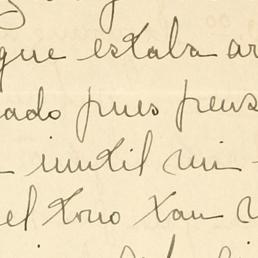 que estaba ar
ado pues pens
inutil mi-
el tono tan